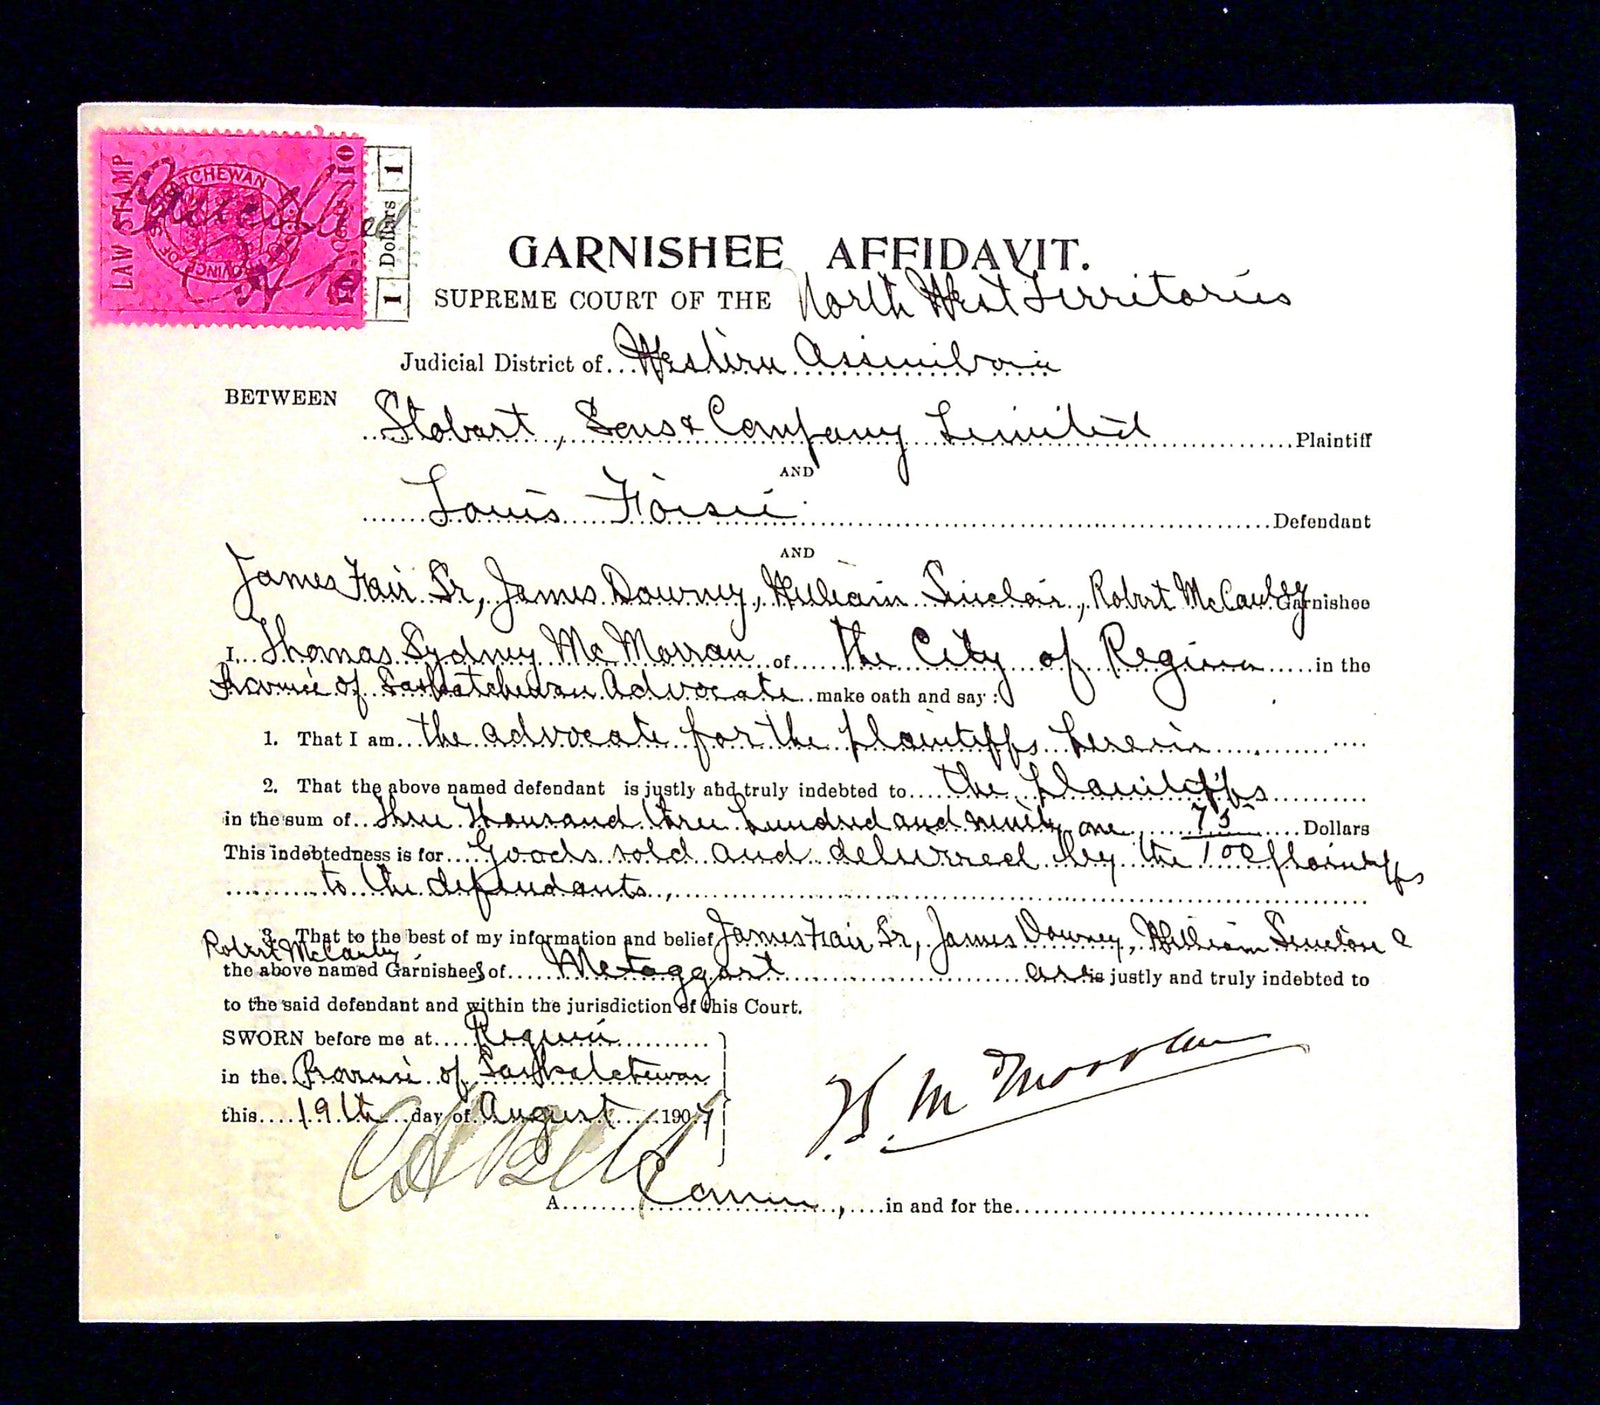 LAW STAMP
PROVINCE OF SASKATCHEWAN
10
10
1 Dollars 1
GARNISHEE AFFIDAVIT.
SUPREME COURT OF THE North West Territories
Judicial District of Western Assiniboia
BETWEEN
Stobart, Sons & Company Limited Plaintiff
AND
Louis Foisie Defendant
AND
James Fair Sr, James Downey, William Sinclair, Robert McCauley Garnishee
I Thomas Sydney McMorran of the City of Regina in the
Province of Saskatchewan Advocate make oath and say:
1. That I am the advocate for the plaintiffs herein
2. That the above named defendant is justly and truly indebted to the plaintiffs
in the sum of three thousand three hundred and ninety one 75/100 Dollars
This indebtedness is for Goods sold and delivered by the plaintiffs
to the defendants,
3. That to the best of my information and belief James Fair Sr, James Downey, William Sinclair &
Robert McCauley
the above named Garnishees of Metaggart are is justly and truly indebted to
to the said defendant and within the jurisdiction of this Court.
SWORN before me at Regina
in the Province of Saskatchewan
this 19th day of August 1907
McMorran
A Comm, in and for the